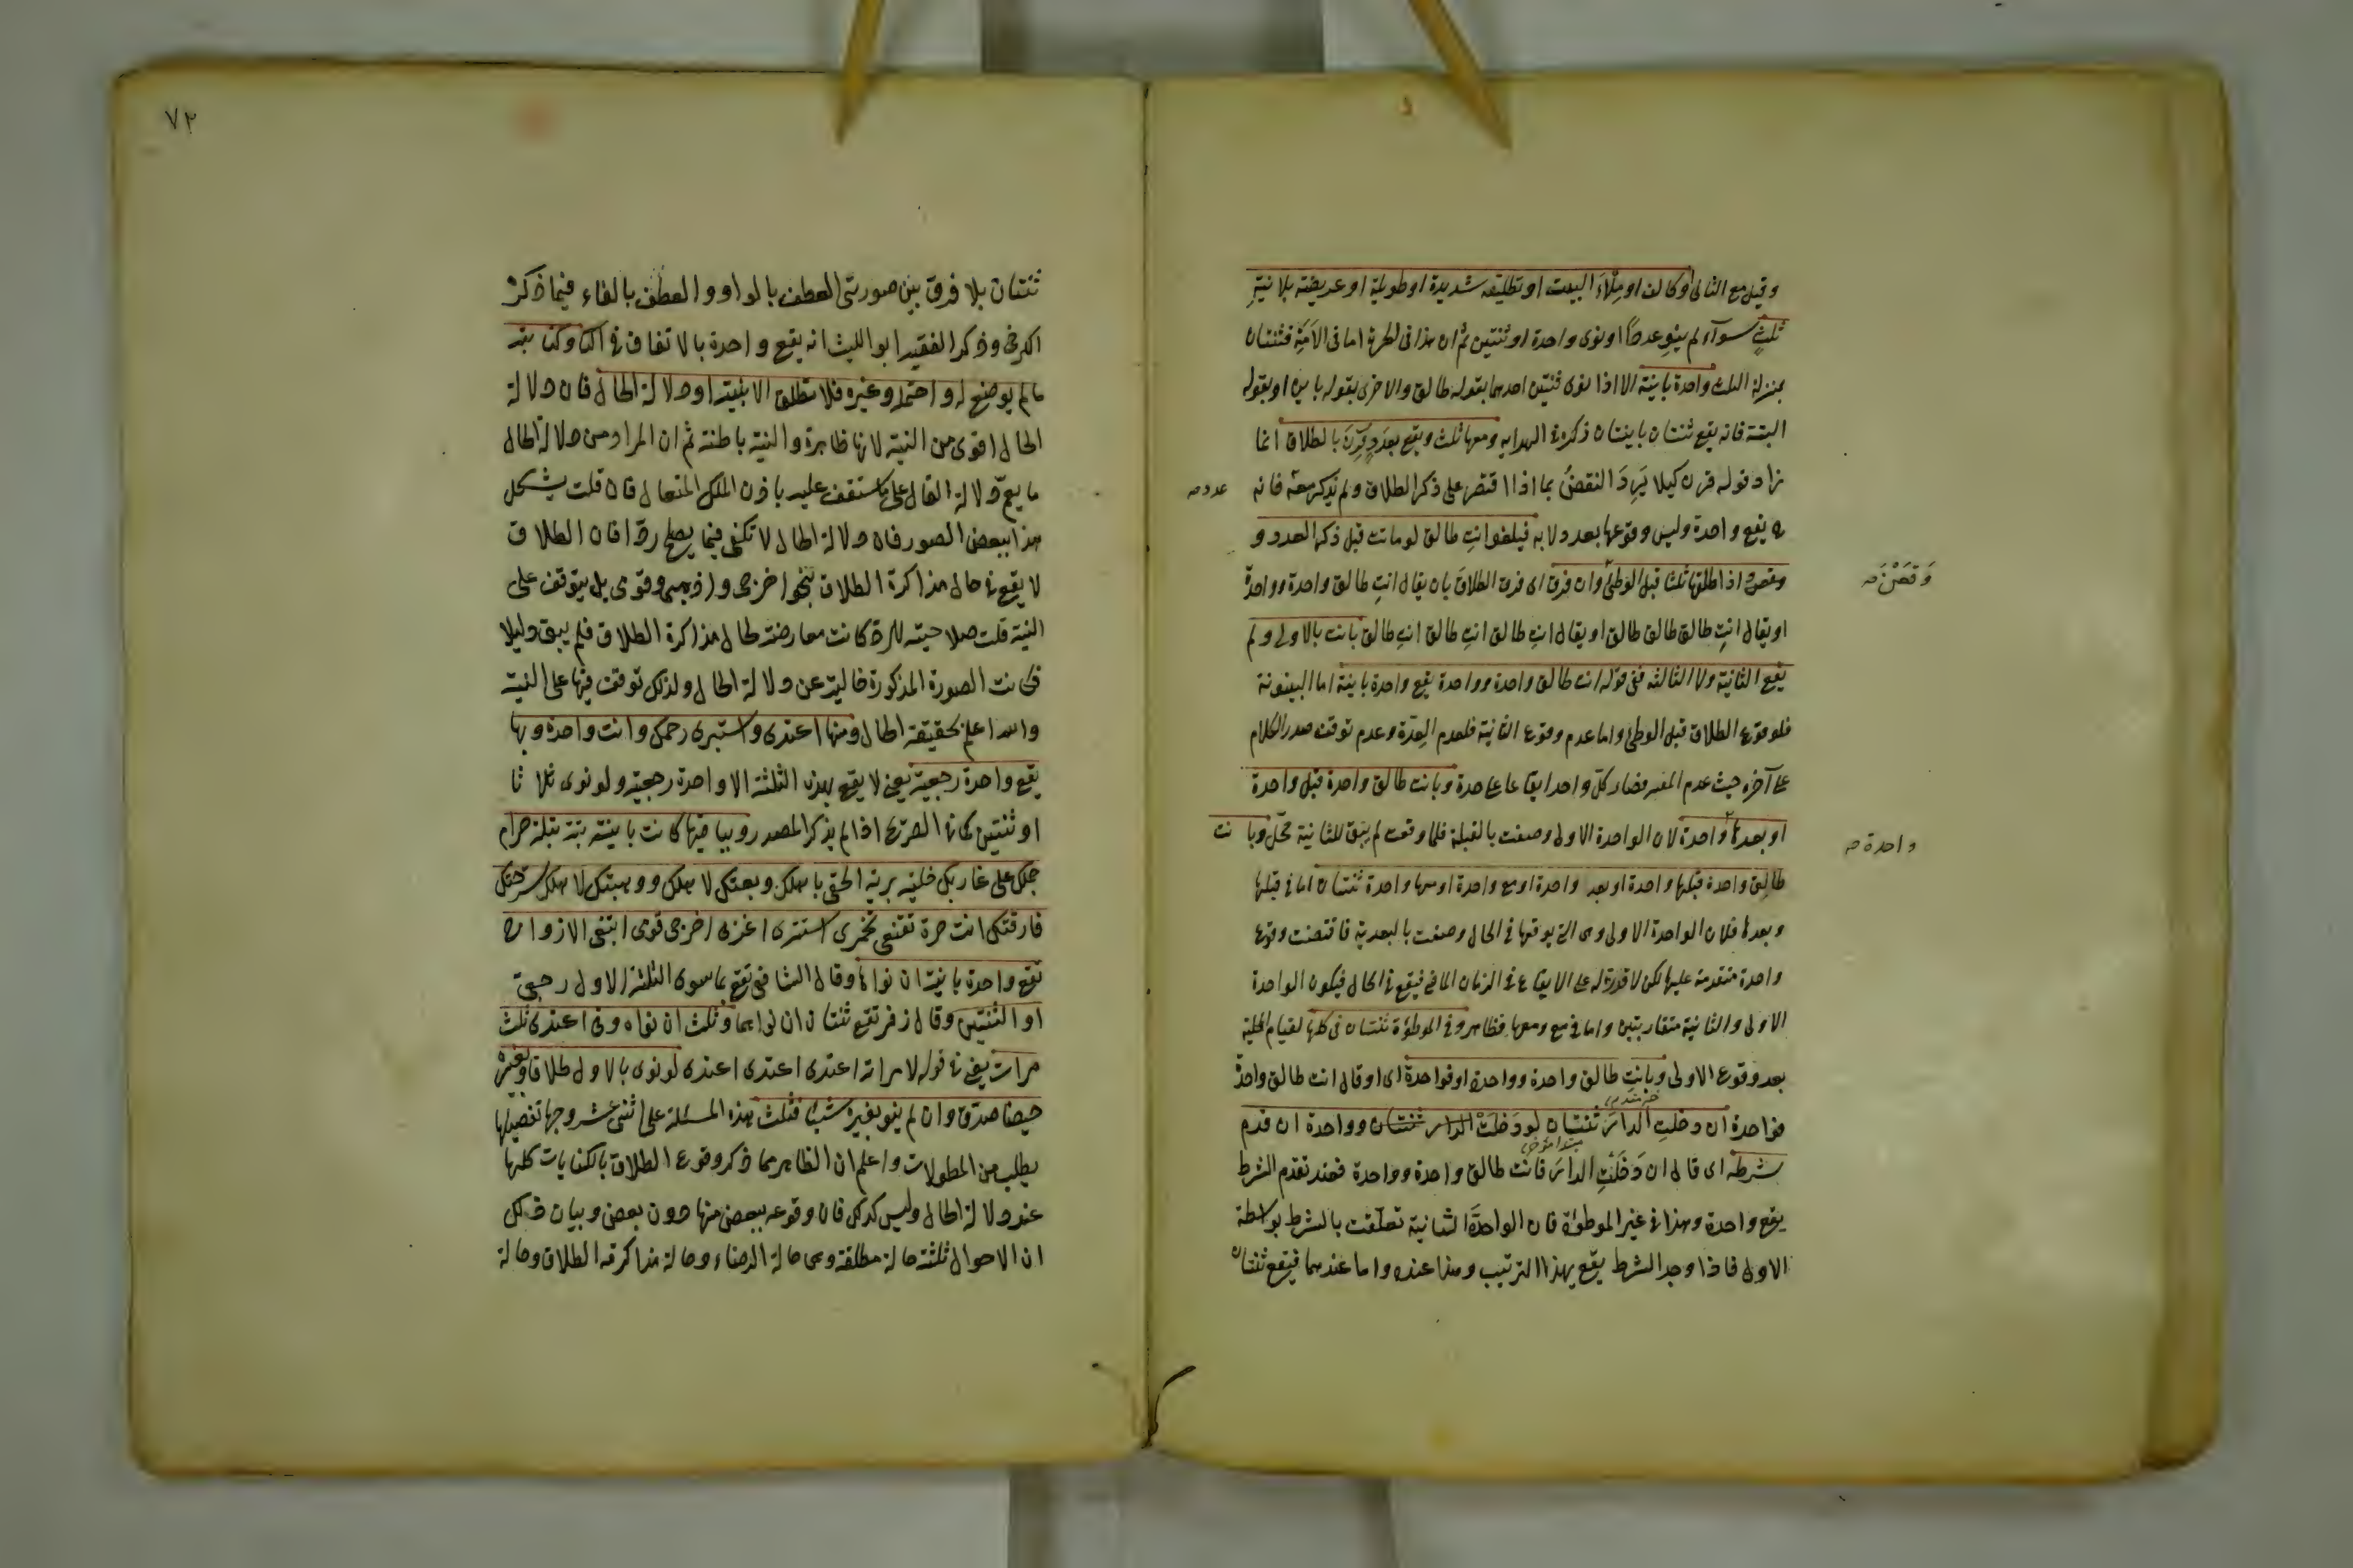 وقيل مع الثانى او كالف او ملأ البيت او تطليقة شديدة او طويلة او عريضة بلا نية
ثلث سواء لم ينو عددا او نوى واحدة او ثنتين ثم ان هذا فى الحرة اما فى الامة فثنتان
بمنزلة الثلث واحدة باينة الا اذا نوى ثنتين احدهما بقوله طالق والاخرى بقوله باين او بقوله
البتة فانه يقع ثنتان باينتان ذكره فى الهدايه ومعها ثلث ويقع بعدد قرن بالطلاق انما
زاد قوله قرن كيلا يرد النقض بما اذا اقتصر على ذكر الطلاق ولم يذكر معه فانه
عدد صح
يقع واحدة وليس وقوعها بعدد لا به فيلغو انت طالق لو ماتت قبل ذكر العدد و
اذا طلقها ثلثا قبل الوطئ وان فرق اى فرق الطلاق بان يقال انت طالق واحدة وواحدة
وقعن صح
او يقال انت طالق طالق طالق او يقال انت طالق انت طالق انت طالق بانت بالاولى ولم
يقع الثانية ولا الثالثه ففى قوله انت طالق واحدة وواحدة يقع واحدة باينة اما البينونة
فلوقوع الطلاق قبل الوطئ واما عدم وقوع الثانية فلعدم العدة وعدم توقف صدر الكلام
على آخره حيث عدم المغير فصار كل واحد ايقاعا على حدة وبانت طالق واحدة قبل واحدة
او بعدها واحدة لان الواحدة الاولى وصفت بالقبلة فلما وقعت لم يبق للثانية محل وبا نت
واحدة صح
طالق واحدة قبلها واحدة او بعد واحدة او مع واحدة او معها واحدة ثنتان اما فى قبلها
وبعدها فلان الواحدة الاولى وهى التى يوقعها فى الحال وصفت بالبعدية فاقتضت وقوع
واحدة متقدمة عليها لكن لا قدرة له على الايقاع فى الزمان الماضى فيقع فى الحال فيكون الواحدة
الاولى والثانية متقاربتين واما فى مع ومعها فظاهر وفى الموطوءة ثنتان فى كلها لقيام المحلية
بعد وقوع الاولى وبانت طالق واحدة وواحدة او فواحدة اى او قال انت طالق واحدة
فواحدة ان دخلت الدار ثنتان لو دخلت الدار ثنتان وواحدة ان قدم
شرطه اى قال ان دخلت الدار فانت طالق واحدة وواحدة فعند تقدم الشرط
يقع واحدة وهذا فى غير الموطوءة فان الواحدة الثانية تعلقت بالشرط بواسطة
الاولى فاذا وجد الشرط يقع بهذا الترتيب وهذا عنده واما عندهما فيقع ثنتان
٧٢
ثنتان بلا فرق بين صورتى العطف بالواو والعطف بالفاء فيما ذكر
الكرخى وذكر الفقيه ابو الليث انه يقع واحدة بالاتفاق فى الفاء وكنايته
ما لم يوضع له واحتمله وغيره فلا تطلق الا بنيته او دلالة الحال فان دلالة
الحال اقوى من النية لانها ظاهرة والنية باطنة ثم ان المراد من دلالة الحال
ما يعم دلالة القال على ما ستقف عليه باذن الملك المتعال فان قلت يشكل
هذا ببعض الصور فان دلالة الحال لا تكفى فيما يصلح ردا فان الطلاق
لا يقع فى حال مذاكرة الطلاق بنحو اخرجى واذهبى وقومى بل يتوقف على
النية قلت صلاحيته للرد كانت معارضة لحال مذاكرة الطلاق فلم يبق دليلا
فكانت الصورة المذكورة خالية عن دلالة الحال ولذلك توقفت فيها على النية
والله اعلم بحقيقة الحال ومنها اعتدى واستبرى رحمك وانت واحدة وبها
يقع واحدة رجعية يعنى لا يقع بهذه الثلثة الا واحدة رجعية ولو نوى ثلا ثا
او ثنتين كما فى الصريح اذا لم يذكر المصدر وبباقيها كانت باينة بتة بتلة حرام
حبلك على غاربك خلية برية الحقى باهلك وهبتك لاهلك سرحتك
فارقتك انت حرة تقنعى تخمرى استترى اغربى اخرجى قومى ابتغى الازواج
تقع واحدة باينة ان نواها وقال الشافعى تقع بما سوى الثلثة الاول رجعى
او الثنتين وقال زفر تقع ثنتان ان نواهما وثلث ان نواه وفى اعتدى ثلث
مرات يعنى فى قوله لامراته اعتدى اعتدى اعتدى لو نوى بالاول طلاقا وبغيره
حيضا صدق وان لم ينو بغيره شيئا فثلث هذه المسئلة على اثنى عشر وجها تفصيلها
يطلب من المطولات واعلم ان الظاهر مما ذكر وقوع الطلاق بالكنايات كلها
عند دلالة الحال وليس كذلك فان وقوعه ببعض منها دون بعض وبيان ذلك
ان الاحوال ثلثة حالة مطلقة وهى حالة الرضاء وحالة مذاكرة الطلاق وحالة